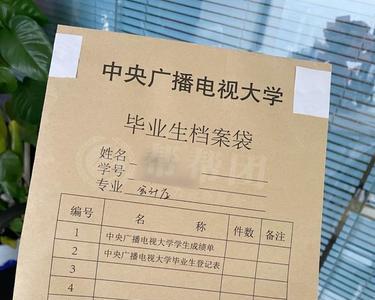 中央广播电视大学
毕业生档案袋
姓名
学号
专业
编号 名 称 件数 备注
1 中央广播电视大学学生成绩单
2 中央广播电视大学毕业生登记表
3
4